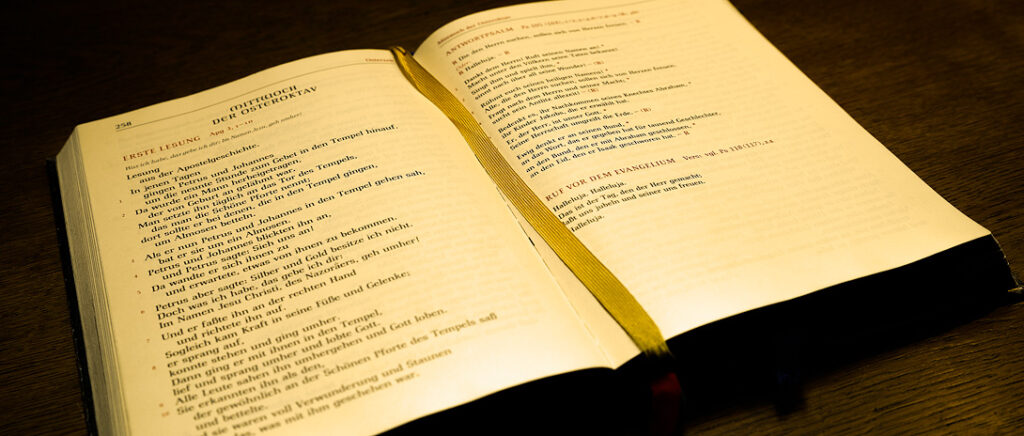 258
MITTWOCH
DER OSTEROKTAV
ERSTE LESUNG Apg 3, 1-10
Was ich habe, das gebe ich dir: Im Namen Jesu, geh umher!
Lesung
aus der Apostelgeschichte.
In jenen Tagen
1 gingen Petrus und Johannes
um die neunte Stunde zum Gebet in den Tempel hinauf.
2 Da wurde ein Mann herbeigetragen,
der von Geburt an gelähmt war.
Man setzte ihn täglich an das Tor des Tempels,
das man die Schöne Pforte nennt;
dort sollte er bei denen, die in den Tempel gingen,
um Almosen betteln.
3 Als er nun Petrus und Johannes in den Tempel gehen sah,
bat er sie um ein Almosen.
4 Petrus und Johannes blickten ihn an,
und Petrus sagte: Sieh uns an!
5 Da wandte er sich ihnen zu
und erwartete, etwas von ihnen zu bekommen.
6 Petrus aber sagte: Silber und Gold besitze ich nicht.
Doch was ich habe, das gebe ich dir:
Im Namen Jesu Christi, des Nazoräers, geh umher!
7 Und er faßte ihn an der rechten Hand
und richtete ihn auf.
Sogleich kam Kraft in seine Füße und Gelenke;
8 er sprang auf,
konnte stehen und ging umher.
Dann ging er mit ihnen in den Tempel,
lief und sprang umher und lobte Gott.
9 Alle Leute sahen ihn umhergehen und Gott loben.
10 Sie erkannten ihn als den,
der gewöhnlich an der Schönen Pforte des Tempels saß
und bettelte.
und sie waren voll Verwunderung und Staunen
was mit ihm geschehen war.
Mittwoch der Osteroktav
ANTWORTPSALM Ps 105
R Die den Herrn suchen, sollen sich von Herzen freuen. - R
R Halleluja. - R
Dankt dem Herrn! Ruft seinen Namen an! *
Macht unter den Völkern seine Taten bekannt!
Singt ihm und spielt ihm, *
sinnt nach über all seine Wunder! - (R)
Rühmt euch seines heiligen Namens! *
Alle, die den Herrn suchen, sollen sich von Herzen freuen.
Fragt nach dem Herrn und seiner Macht; *
sucht sein Antlitz allezeit! - (R)
Bedenkt es, ihr Nachkommen seines Knechtes Abraham, *
ihr Kinder Jakobs, die er erwählt hat.
Er, der Herr, ist unser Gott. *
Seine Herrschaft umgreift die Erde. - (R)
Ewig denkt er an seinen Bund, *
an das Wort, das er gegeben hat für tausend Geschlechter,
an den Bund, den er mit Abraham geschlossen, *
an den Eid, den er Isaak geschworen hat. -
RUF VOR DEM EVANGELIUM Vers: vgl. Ps 118 (117), 24
Halleluja. Halleluja.
Das ist der Tag, den der Herr gemacht;
laßt uns jubeln und seiner uns freuen.
Halleluja.